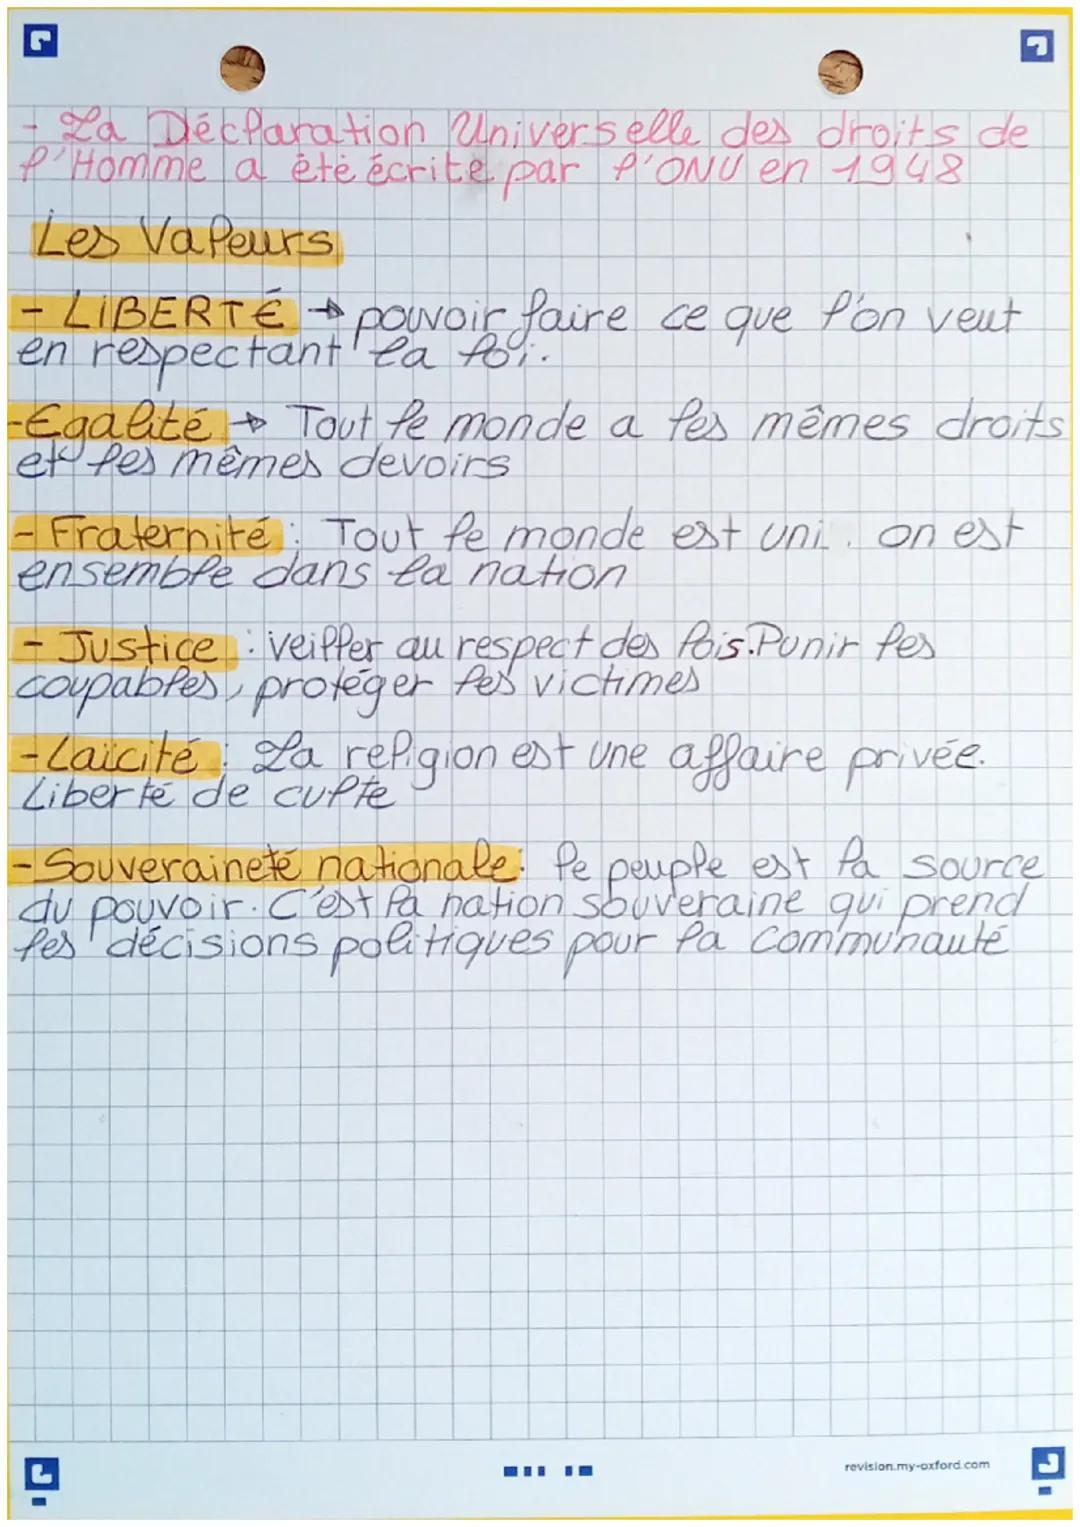 - La Déclaration Universelle des droits de
l'Homme a été écrite par l'ONU en 1948
Les Valeurs
- LIBERTÉ → pouvoir faire ce que l'on veut
en respectant la loi.
- Egalité → Tout le monde a les mêmes droits
et les mêmes devoirs
- Fraternité : Tout le monde est uni. on est
ensemble dans la nation
- Justice : veiller au respect des lois. Punir les
coupables, protéger les victimes
- Laïcité : La religion est une affaire privée.
Liberté de culte
- Souveraineté nationale : le peuple est la source
du pouvoir. C'est la nation souveraine qui prend
les décisions politiques pour la communauté
revision.my-oxford.com